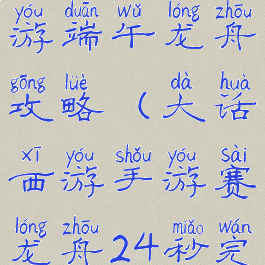 yóu duān wǔ lóng zhōu
游端午龙舟
gōng lüè dà huà
攻略(大话
xī yóu shǒu yóu sài
西游手游赛
lóng zhōu miǎo wán
龙舟24秒完